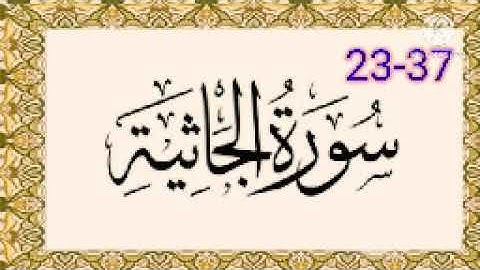 23-37
سُورَةُ الجَاثِيَةِ